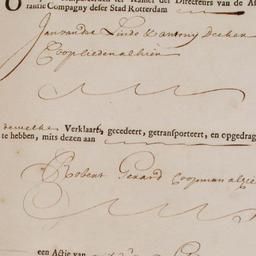 Directeurs van de As
rantie Compagny deser Stad Rotterdam
Jan vander Linde & antony Decker
Coopliedenalhier
dewelke Verklaart, gecedeert, getransporteert, en opgedrag
te hebben, mits dezen aan
Robert Gerard Coopman
een Actie van